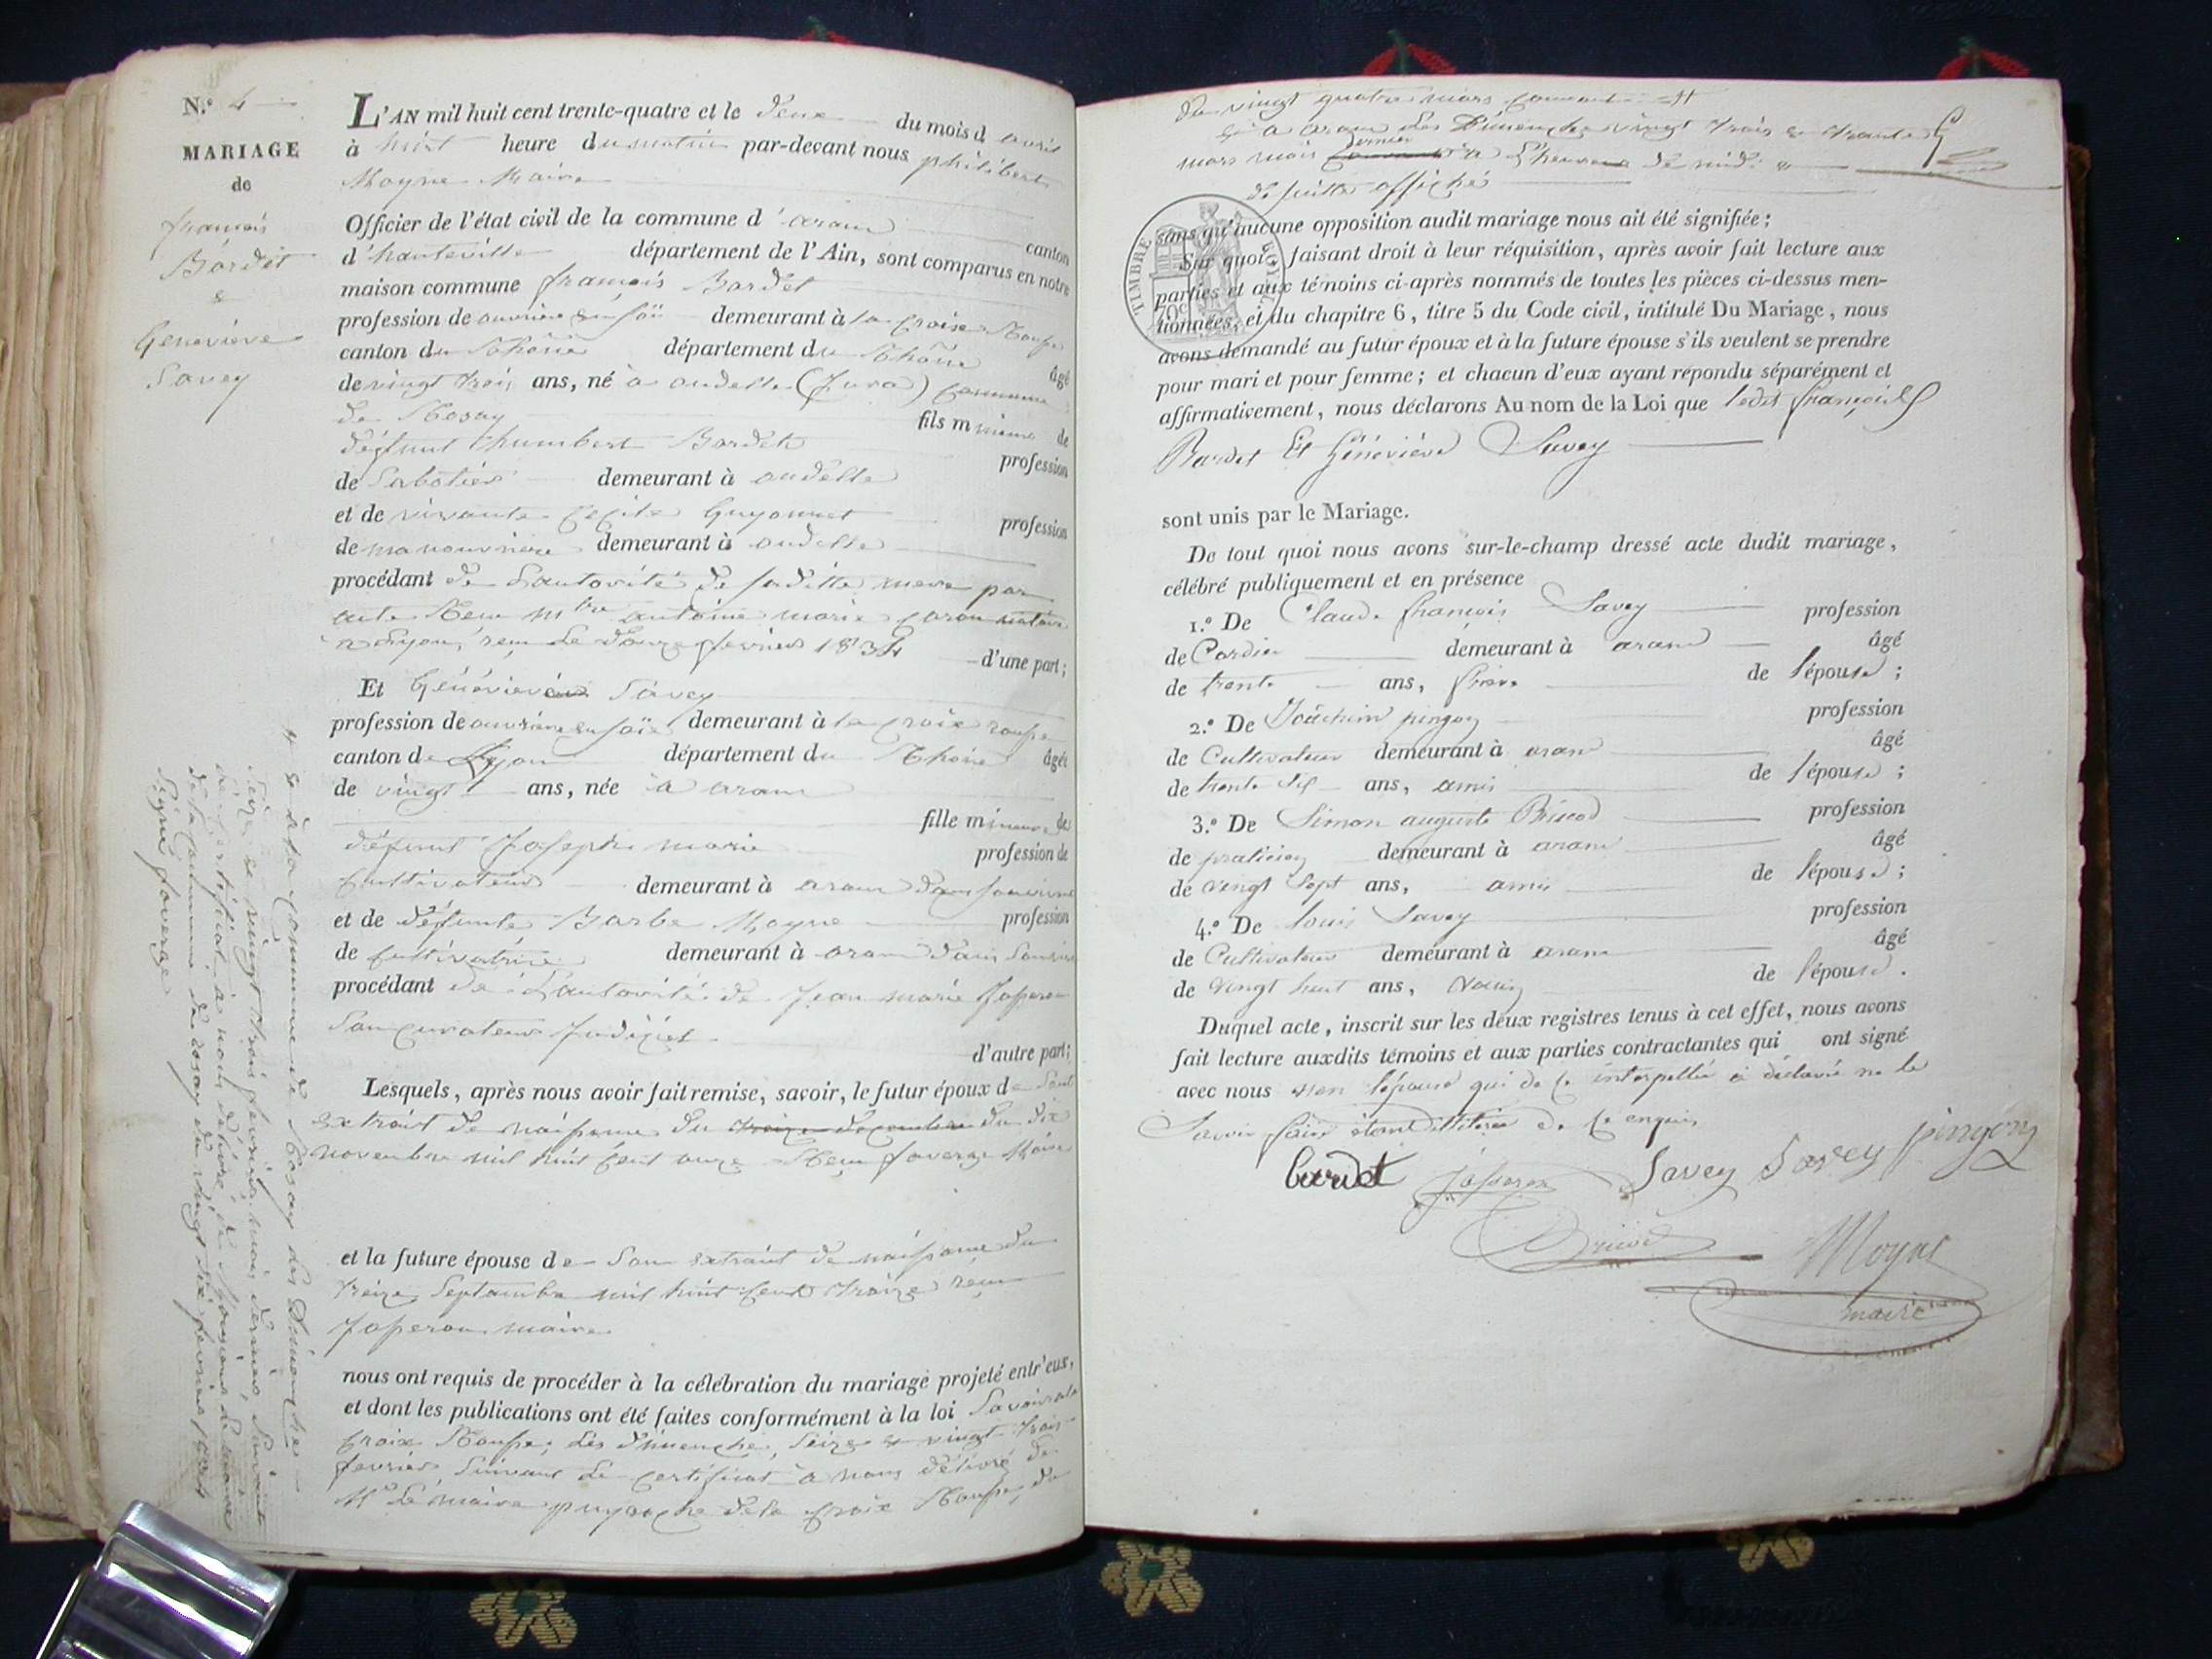 N.º 4
MARIAGE
de
françois
Bardet
&
Geneviève
Savey
L'AN mil huit cent trente-quatre et le deux du mois d avril
à huit heure du matin par-devant nous philibert
Moyne Maire
Officier de l'état civil de la commune d'aranc canton
d'hauteville département de l'Ain, sont comparus en notre
maison commune françois Bardet
profession de ouvrier en soie demeurant à la croix Rousse
canton du département du Rhône âgé
de vingt trois ans, né à andelle (Jura) commune
de Rosay fils mineur de
défunt humbert Bardet profession
de Sabotier demeurant à andelle
et de vivante Cécile Guyonnet profession
de manouvrière demeurant à andelle
procédant de L'autorité de saditte mere par
acte Reçu mtre antoine marie caron notaire
a Lyon, reçu Le douze fevrier 1834 d'une part;
Et Généviève Savey
profession de ouvrière en soie demeurant à la croix rousse
canton de Lyon département du Rhône âgée
de vingt ans, née à aranc
fille mineure de
défunt Joseph marie profession de
Cultivateur demeurant à aranc de son vivant
et de défunte Barbe Moyne profession
de cultivatrice demeurant à aranc
procédant de L'autorité de Jean marie Josseron
Son curateur d'autre part;
Lesquels, après nous avoir fait remise, savoir, le futur époux de Son
extrait de naissance du treize decembre du dix
novembre mil huit cent onze Reçu faverge Maire
et la future épouse de Son extrait de naissance du
treize Septembre mil huit cent treize reçu
Josseron maire
nous ont requis de procéder à la célébration du mariage projeté entr'eux,
et dont les publications ont été faites conformément à la loi Savoir à la
croix Rousse, les dimenche, Seize & vingt trois
fevrier Suivant Le certificat a nous délivré de
Mr Le maire puyroche de la croix Rousse, du
# & à la commune de Rosay les Dimenches
Seize & vingt trois fevrier mois dernier, Suivant
Le certificat à nous délivré de Le maire
de la Commune de rosay du vingt six fevrier
Signé faverge
du vingt quatre mars courant #
& a aranc Les Dimenches vingt trois & trente
mars mois courant dernier a L'heure de midi
de suitte affiché
TIMBRE ROYAL
70c
sans qu'aucune opposition audit mariage nous ait été signifiée;
Sur quoi faisant droit à leur réquisition, après avoir fait lecture aux
parties et aux témoins ci-après nommés de toutes les pièces ci-dessus men-
tionnées, et du chapitre 6, titre 5 du Code civil, intitulé Du Mariage, nous
avons demandé au futur époux et à la future épouse s'ils veulent se prendre
pour mari et pour femme; et chacun d'eux ayant répondu séparément et
affirmativement, nous déclarons Au nom de la Loi que ledit françois
Bardet Et Généviève Savey
sont unis par le Mariage.
De tout quoi nous avons sur-le-champ dressé acte dudit mariage,
célébré publiquement et en présence
1.º De Claude françois Savey profession
de Cordier demeurant à aranc âgé
de trente ans, frère de l'épouse;
2.º De Joachim pingon profession
de Cultivateur demeurant à aranc âgé
de trente six ans, amis de l'épouse;
3.º De Simon auguste Bricod profession
de praticien demeurant à aranc âgé
de vingt Sept ans, amis de l'épouse;
4.º De louis Savey profession
de Cultivateur demeurant à aranc âgé
de vingt huit ans, de l'épouse.
Duquel acte, inscrit sur les deux registres tenus à cet effet, nous avons
fait lecture auxdits témoins et aux parties contractantes qui ont signé
avec nous non l'épouse qui de ce interpellée a déclaré ne le
Savoir faire de ce enquis
bardet Josseron Savey Savey pingon
Bricod Moyne
maire